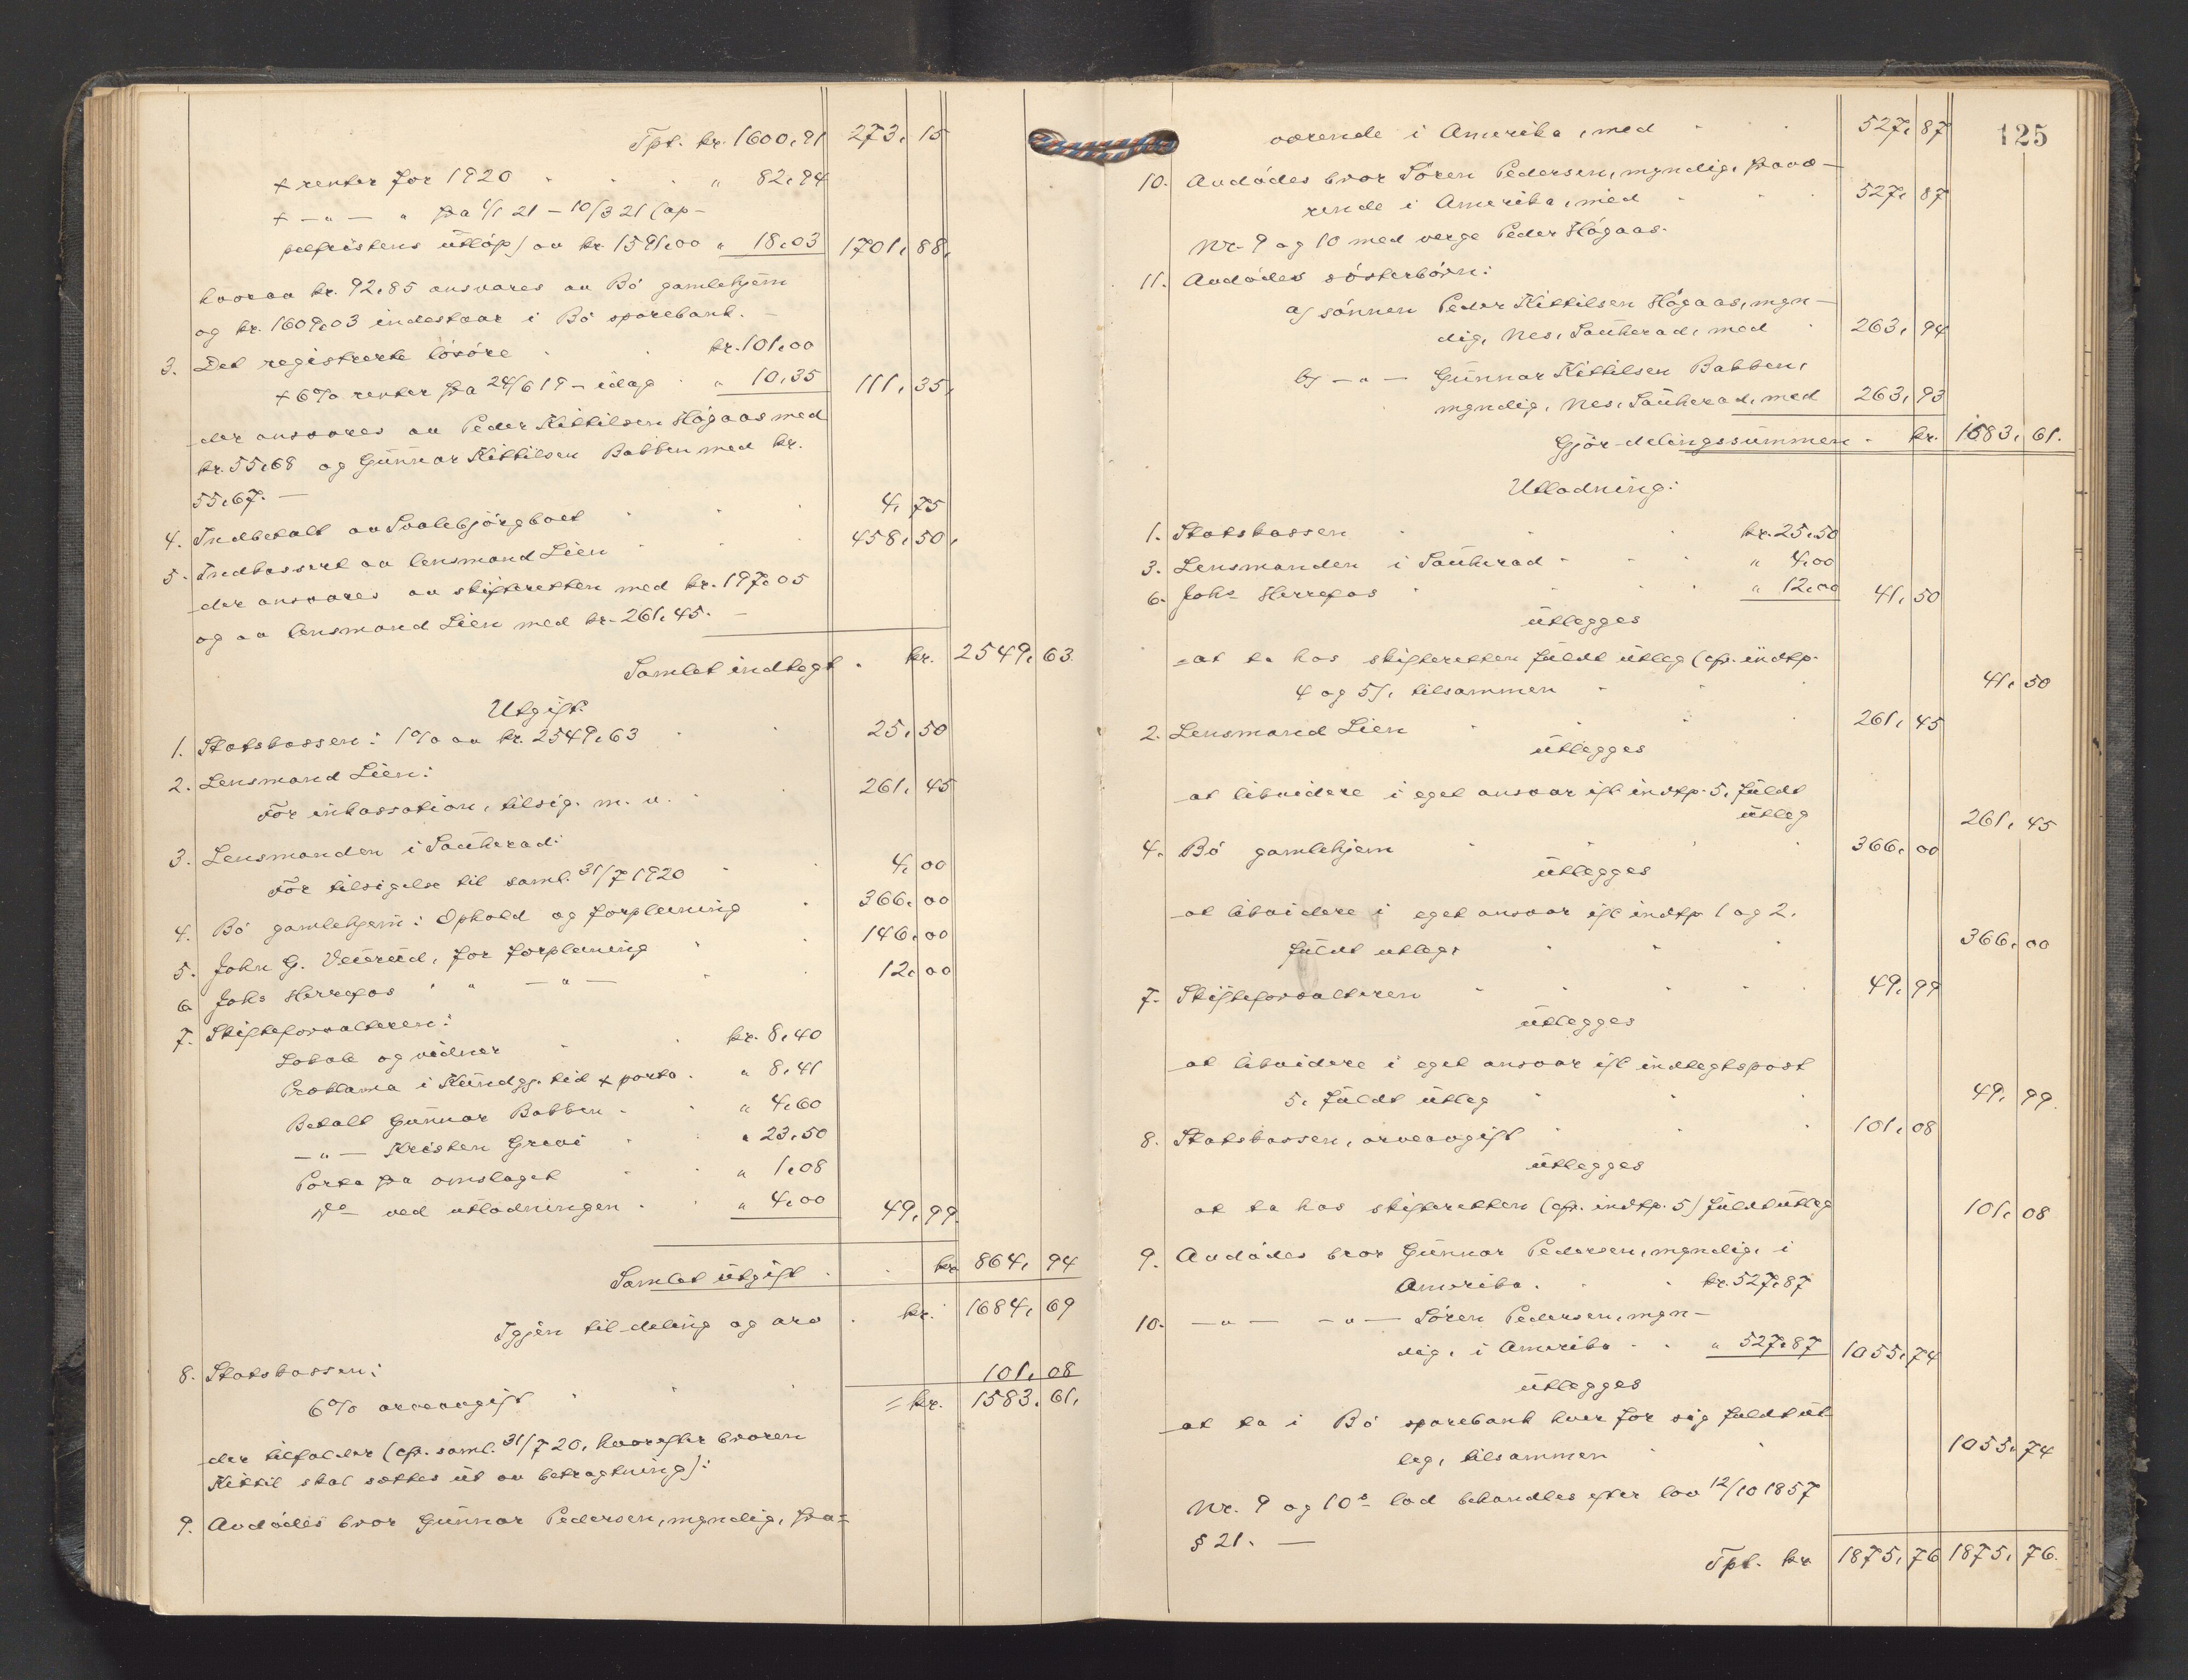 Tpt. kr. 1600,91 273, 15
+ renter for 1920 " 82,94
+ -"- " fra 1/1 21 - 10/3 21 (ap-
pelfristens utløp) av kr. 1591,00 " 18,03 1701, 88,
hvorav kr. 92,85 ansvares av Bø gamlehjem
og kr. 1609,03 indestaar i Bø sparebank. -
3. Det registrerte løsøre kr. 101,00
+ 6% renter fra 24/6 19 - idag " 10,35 111, 35,
der ansvares av Peder Kittilsen Høgaas med
kr. 55,68 og Gunnar Kittilsen Babben med kr.
55,67. -
4. Indbetalt av Svalebjørgboet 4, 75
5. Indkassert av lensmand Lien 458, 50,
der ansvares av skifteretten med kr. 197,05
og av lensmand Lien med kr. 261,45. -
Samlet indtægt. kr. 2549, 63.
Utgift:
1. Statskassen: 1% av kr. 2549,63 25, 50
2. Lensmand Lien:
For inkassation, tilsig. m. v. 261, 45
3. Lensmanden i Sauherad:
For tilsigelse til saml. 31/7 1920 4, 00
4. Bø gamlehjem: Ophold og forpleining 366, 00
5. John G. Veierud, for forpleining 146, 00
6. Johs Herrefos " " -"- 12, 00
7. Skifteforvalteren:
Lokale og vidner kr. 8,40
Proklama i Kundgj. tid + porto. " 8,41
Betalt Gunnar Babben " 4,60
-"- Kristen Grave " 23,50
Porto fra omslaget " 1,08
do ved utlodningen " 4,00 49, 99.
Samlet utgift kr 864, 94
Igjen til deling og arv kr. 1684, 69
8. Statskassen:
6% arveavgift 101, 08
= kr. 1583, 61,
der tilfalder (cfr. saml. 31/7 20, hvorefter broren
Kittil skal sættes ut av betragtning):
9. Avdødes bror Gunnar Pedersen, myndig, fra-
125
værende i Amerika, med 527, 87
10. Avdødes bror Søren Pedersen, myndig, fravæ-
rende i Amerika, med 527, 87
Nr. 9 og 10 med verge Peder Høgaas.
11. Avdødes søsterbørn:
a) sønnen Peder Kittilsen Høgaas, myn-
dig, Nes, Sauherad, med 263, 94
b) -"- Gunnar Kittilsen Babben,
myndig, Nes, Sauherad, med 263, 93
Gjør delingssummen kr. 1583, 61.
Utlodning:
1. Statskassen kr. 25,50
3. Lensmanden i Sauherad " 4,00
6. Johs Herrefos " 12,00 41, 50
utlegges
at ta hos skifteretten fuldt utlæg (cfr. indtp.
4 og 5), tilsammen 41, 50
2. Lensmand Lien 261, 45
utlegges
at likvidere i eget ansvar ifl. indtp. 5, fuldt
utlæg 261, 45
4. Bø gamlehjem 366, 00
utlegges
at likvidere i eget ansvar ifl indtp 1 og 2,
fuldt utlæg 366, 00
7. Skifteforvalteren 49, 99
utlegges
at likvidere i eget ansvar ifl indtægtspost
5, fuldt utlæg 49, 99.
8. Statskassen, arveavgift 101, 08
utlegges
at ta hos skifteretten (cfr. indtp. 5) fuldt utlæg 101, 08
9. Avdødes bror Gunnar Pedersen, myndig, i
Amerika kr. 527,87
10. -"- -"- Søren Pedersen, myn-
dig, i Amerika " 527,87 1055, 74
utlegges
at ta i Bø sparebank hver for sig fuldt ut-
læg, tilsammen 1055, 74
Nr. 9 og 10s lod behandles efter lov 12/10 1857
§ 21. -
Tpt. kr 1875, 76 1875, 76.